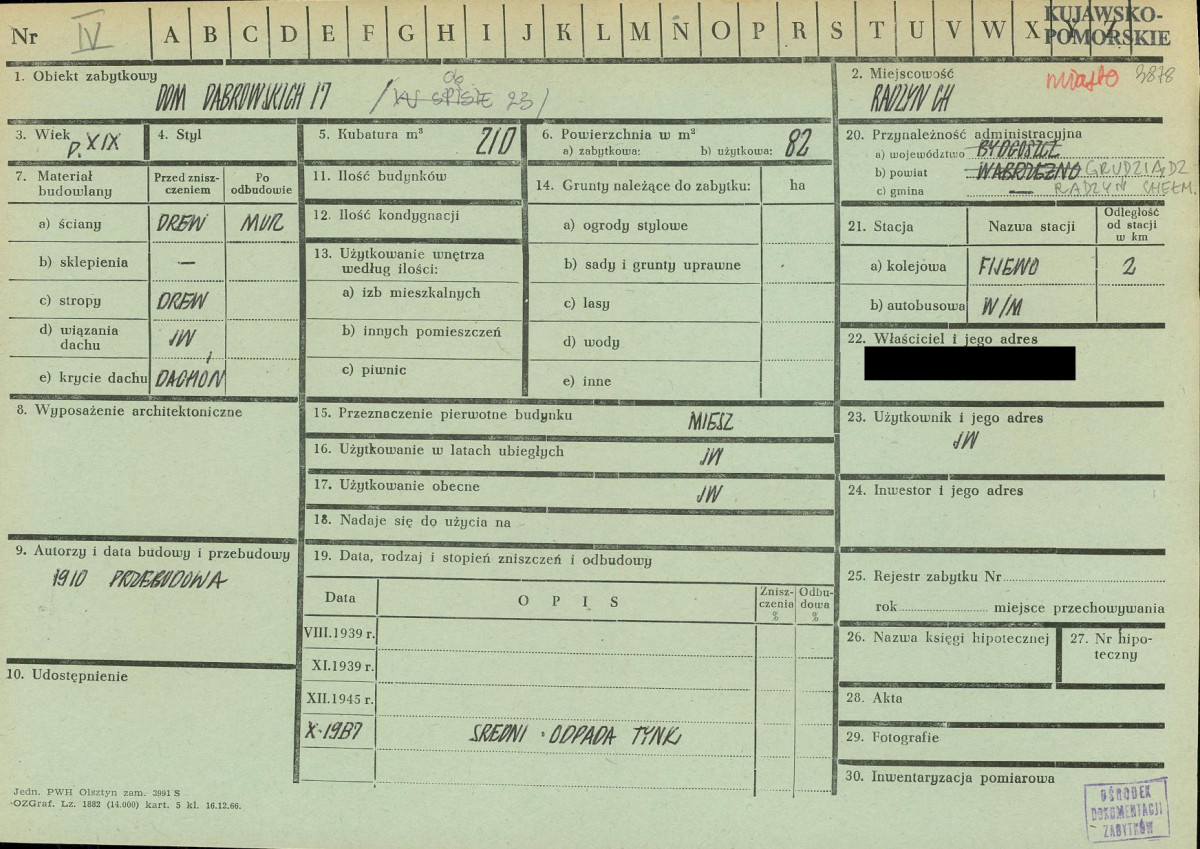 KUJAWSKO-
POMORSKIE
Nr IV A B C D E F G H I J K L M N O P R S T U V W X Y Z
1. Obiekt zabytkowy
DOM DĄBROWSKICH 17 / W SPISIE 23 /
2. Miejscowość
miasto 3878
RADZYN CH
3. Wiek
P. XIX
4. Styl
5. Kubatura m³ 210
6. Powierzchnia w m²
a) zabytkowa: b) użytkowa: 82
7. Materiał budowlany
Przed zniszczeniem
Po odbudowie
a) ściany DREW MUR
b) sklepienia —
c) stropy DREW
d) wiązania dachu JW
e) krycie dachu DACHÓN
8. Wyposażenie architektoniczne
9. Autorzy i data budowy i przebudowy
1910 PRZEBUDOWA
10. Udostępnienie
11. Ilość budynków
12. Ilość kondygnacji
13. Użytkowanie wnętrza według ilości:
a) izb mieszkalnych
b) innych pomieszczeń
c) piwnic
14. Grunty należące do zabytku: ha
a) ogrody stylowe
b) sady i grunty uprawne
c) lasy
d) wody
e) inne
15. Przeznaczenie pierwotne budynku MIESZ
16. Użytkowanie w latach ubiegłych JW
17. Użytkowanie obecne JW
18. Nadaje się do użycia na
19. Data, rodzaj i stopień zniszczeń i odbudowy
Data O P I S Zniszczenia % Odbudowa %
VIII.1939 r.
XI.1939 r.
XII.1945 r.
X-1987 SREDNI · ODPADA TYNK
20. Przynależność administracyjna
a) województwo BYDGOSZCZ
b) powiat WĄBRZEŹNO GRUDZIĄDZ
c) gmina — RADZYŃ CHEŁM.
21. Stacja Nazwa stacji Odległość od stacji w km
a) kolejowa FIJEWO 2
b) autobusowa W/M
22. Właściciel i jego adres
23. Użytkownik i jego adres
JW
24. Inwestor i jego adres
25. Rejestr zabytku Nr
rok miejsce przechowywania
26. Nazwa księgi hipotecznej
27. Nr hipoteczny
28. Akta
29. Fotografie
30. Inwentaryzacja pomiarowa
Jedn. PWH Olsztyn zam. 3991 S
OZGraf. Lz. 1882 (14.000) kart. 5 kl. 16.12.66.
OŚRODEK
DOKUMENTACJI
ZABYTKÓW